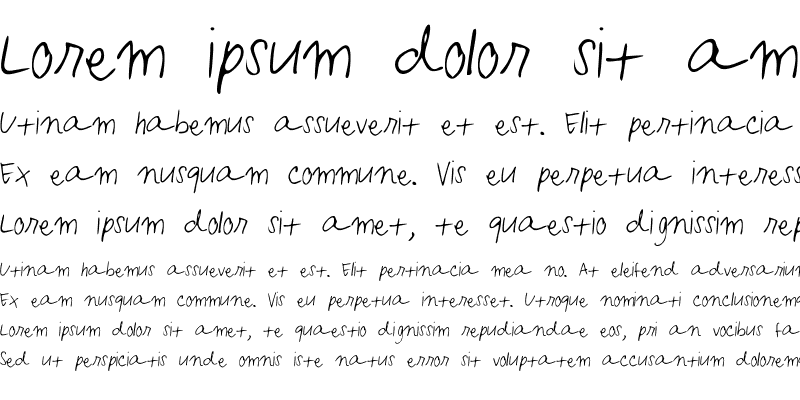 Lorem ipsum dolor sit am
Utinam habemus assueverit et est. Elit pertinacia
Ex eam nusquam commune. Vis eu perpetua interess
Lorem ipsum dolor sit amet, te quaestio dignissim rep
Utinam habemus assueverit et est. Elit pertinacia mea no. At eleifend adversarium
Ex eam nusquam commune. Vis eu perpetua interesset. Utroque nominati conclusionema
Lorem ipsum dolor sit amet, te quaestio dignissim repudiandae eos, pri an vocibus fa
Sed ut perspiciatis unde omnis iste natus error sit voluptatem accusantium doloremq